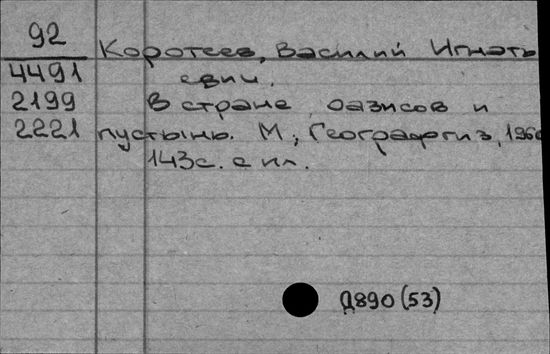 92
Коротеев, Василий Игнать
4491 евич.
2199 В стране оазисов и
2221 пустынь. М., Географгиз, 196
143с. с ил.
Д890(53)